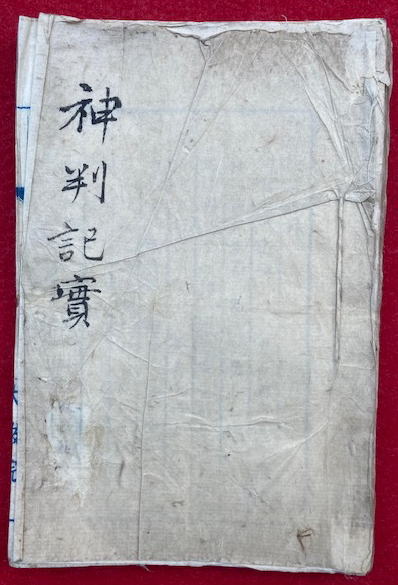 神判記實